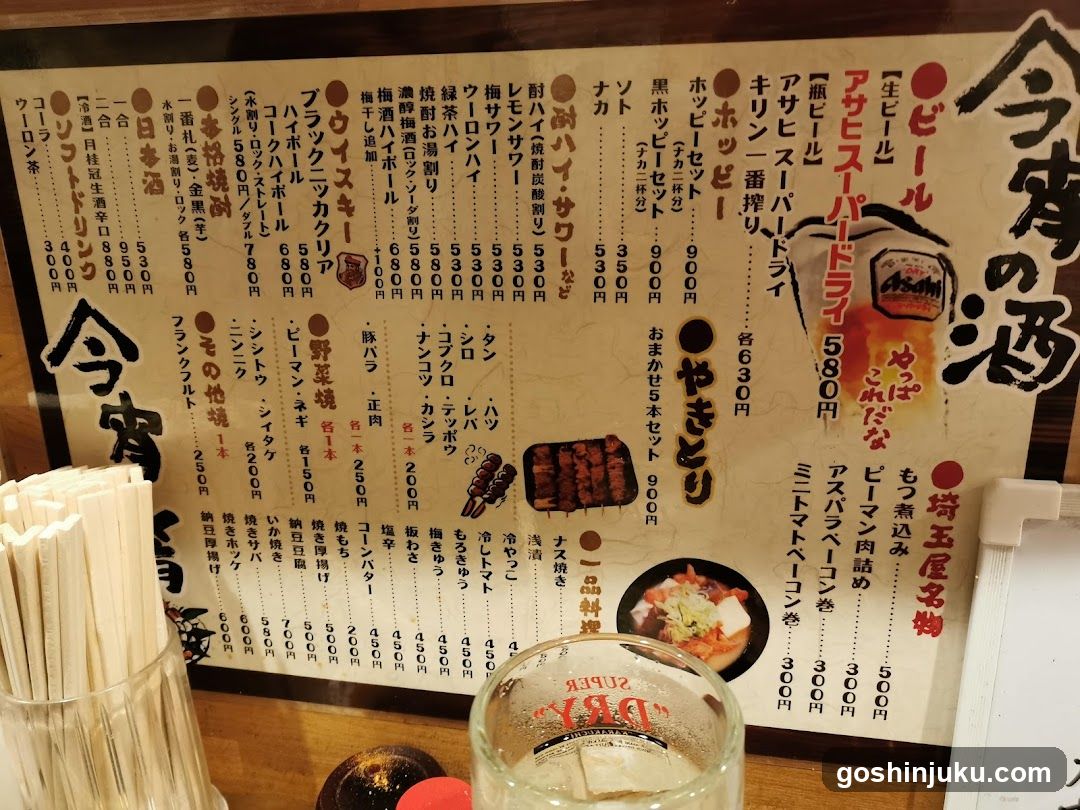 今宵の酒
●ビール
【生ビール】
アサヒスーパードライ 580円
やっぱ
これだな
【瓶ビール】
アサヒスーパードライ
キリン一番搾り………各630円
●ホッピー
ホッピーセット………900円
(ナカ二杯分)
黒ホッピーセット…900円
(ナカ二杯分)
ソト………350円
ナカ………530円
●酎ハイ・サワーなど
酎ハイ(焼酎炭酸割り)530円
レモンサワー………530円
梅サワー………530円
ウーロンハイ………530円
緑茶ハイ………530円
焼酎お湯割り………580円
濃醇梅酒(ロック・ソーダ割り)580円
梅酒ハイボール………680円
梅干し追加………+100円
●ウイスキー
ブラックニッカクリア
ハイボール………580円
コークハイボール………680円
(水割り・ロック・ストレート)
シングル580円/ダブル780円
●本格焼酎
一番札(麦)・金黒(芋)
水割り・お湯割り・ロック 各580円
●日本酒
一合………530円
二合………950円
【冷酒】月桂冠生酒辛口 880円
●ソフトドリンク
コーラ………400円
ウーロン茶………300円
●埼玉屋名物
もつ煮込み………500円
ピーマン肉詰め………300円
アスパラベーコン巻………300円
ミニトマトベーコン巻…300円
●やきとり
おまかせ5本セット 900円
・タン ・ハツ
・シロ ・レバ
・コブクロ・テッポウ
・ナンコツ・カシラ
各一本200円
・豚バラ ・正肉
各一本250円
●野菜焼 各1本
・ピーマン・ネギ 各150円
・シシトウ・シイタケ
・ニンニク 各200円
●その他焼 1本
フランクフルト………250円
●一品料理
ナス焼き
浅漬
冷やっこ
冷しトマト………450円
もろきゅう………450円
梅きゅう………450円
板わさ………450円
塩辛………450円
コーンバター………450円
焼もち………200円
焼き厚揚げ………500円
納豆豆腐………500円
いか焼き………700円
焼きサバ………580円
焼きホッケ………600円
納豆厚揚げ………600円
今宵
Asahi
SUPER
"DRY"
KARAKUCHI
goshinjuku.com